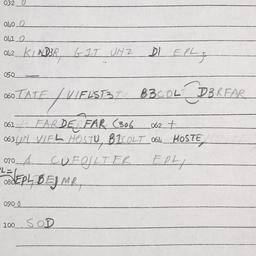 032 0
040 0
041 0
042 KINDER, GIT UNZ DI EPL,
050 —
060 TATE / VIFLST3T B3COL D3RFAR
061 FARDE FAR (306 062 +
063 UN VIFL HOSTU, B3COLT 064 HOSTE,
070 A CUFOJLTER EPL,
080 EPL BEJMR,
090 0
100 SOD